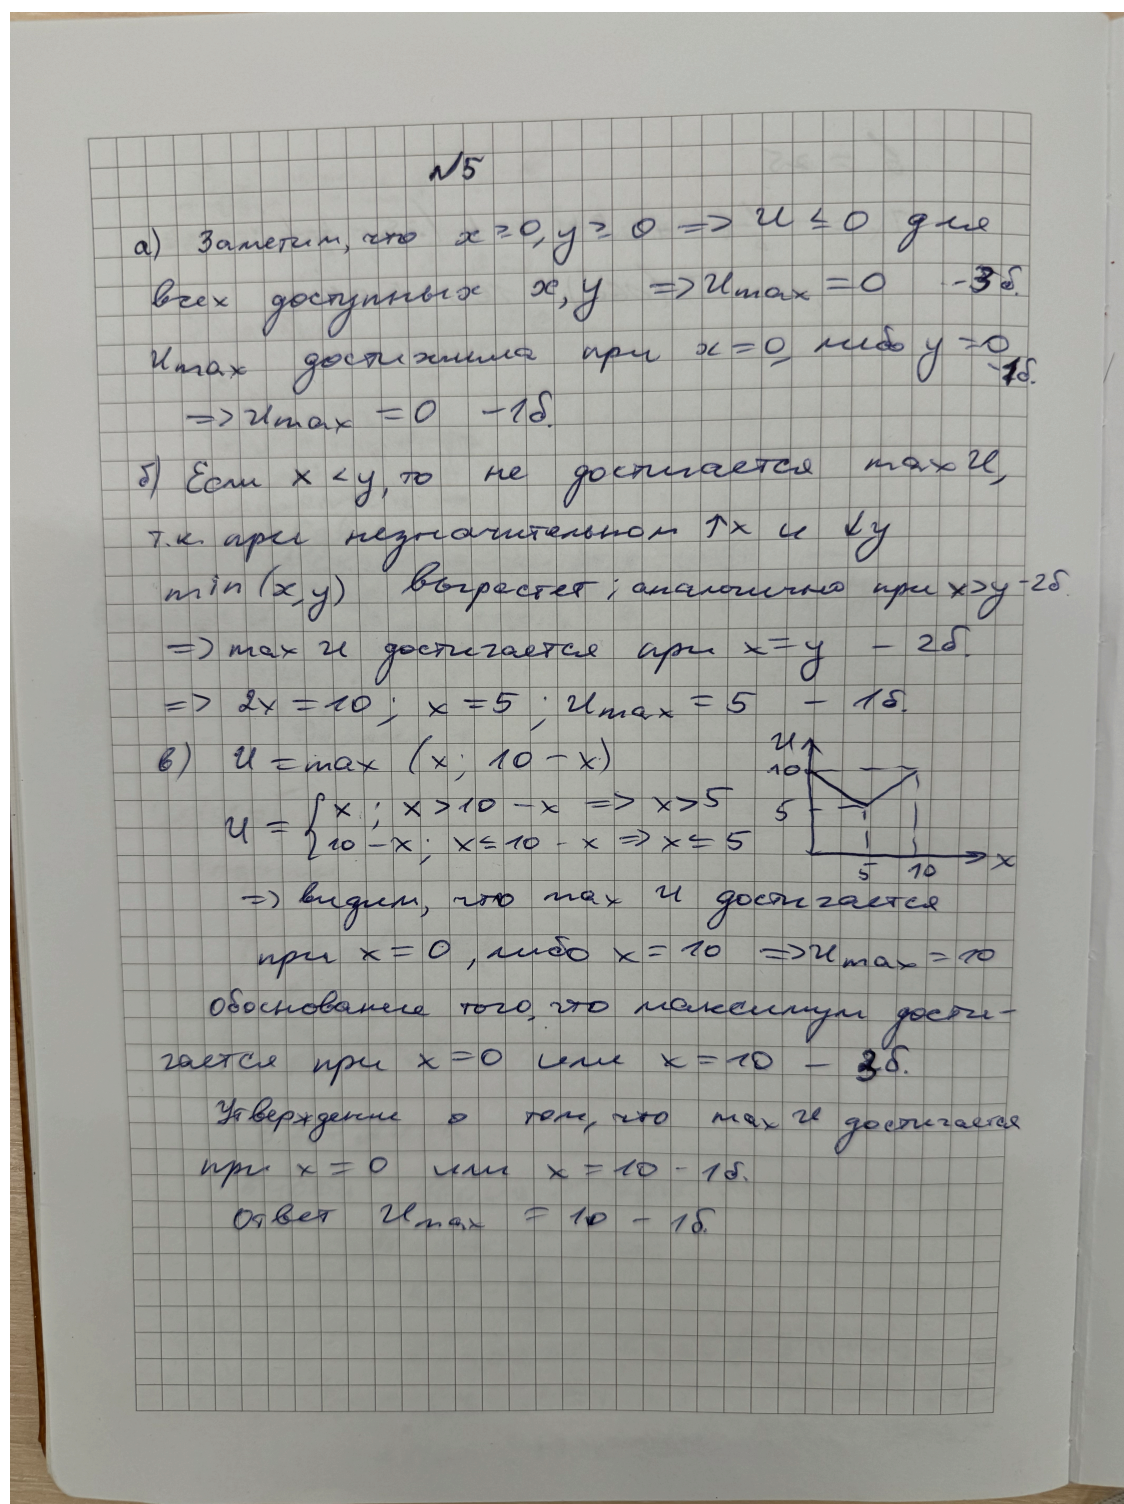 №5
а) Заметим, что x ≥ 0, y ≥ 0 => U ≤ 0 для
всех доступных x, y => Umax = 0 - 3б.
Umax достижима при x = 0, либо y = 0
- 1б.
=> Umax = 0 - 1б.
б) Если x < y, то не достигается max U,
т.к. при незначительном ↑x и ↓y
min(x,y) вырастет; аналогично при x>y - 2б.
=> max U достигается при x = y - 2б.
=> 2x = 10; x = 5; Umax = 5 - 1б.
в) U = max (x; 10 - x)
U = { x; x > 10 - x => x > 5
10 - x; x ≤ 10 - x => x ≤ 5
U
10
5
5 10 x
=> видим, что max U достигается
при x = 0, либо x = 10 => Umax = 10
Обоснование того, что максимум дости-
гается при x = 0 или x = 10 - 3б.
Утверждение о том, что max U достигается
при x = 0 или x = 10 - 1б.
Ответ Umax = 10 - 1б.